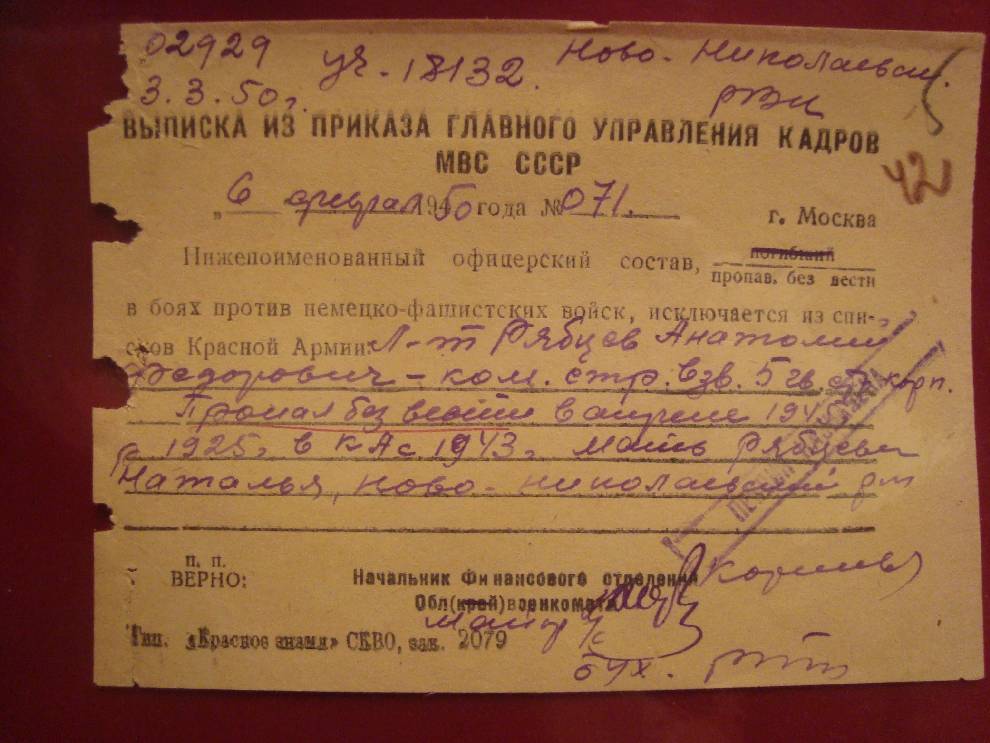 02929 уч. 18132. Ново-Николаевский
3.3.50 г. РВК
42
ВЫПИСКА ИЗ ПРИКАЗА ГЛАВНОГО УПРАВЛЕНИЯ КАДРОВ
МВС СССР
„6 февраля 1950 года № 071. г. Москва
Нижепоименованный офицерский состав, погибший
пропав. без вести
в боях против немецко-фашистских войск, исключается из спи-
сков Красной Армии: Л-т Рябцев Анатолий
Федорович - ком. стр. взв. 5 гв. корп.
Пропал без вести в апреле 194
р. 1925г. в КА с 1943г. Мать Рябцева
Наталья, Ново-Николаевский р-н
п. п.
ВЕРНО: Начальник Финансового отделения
Обл(край)военкомата
Майор
Тип. «Красное знамя» СКВО, зак. 2079
бух.